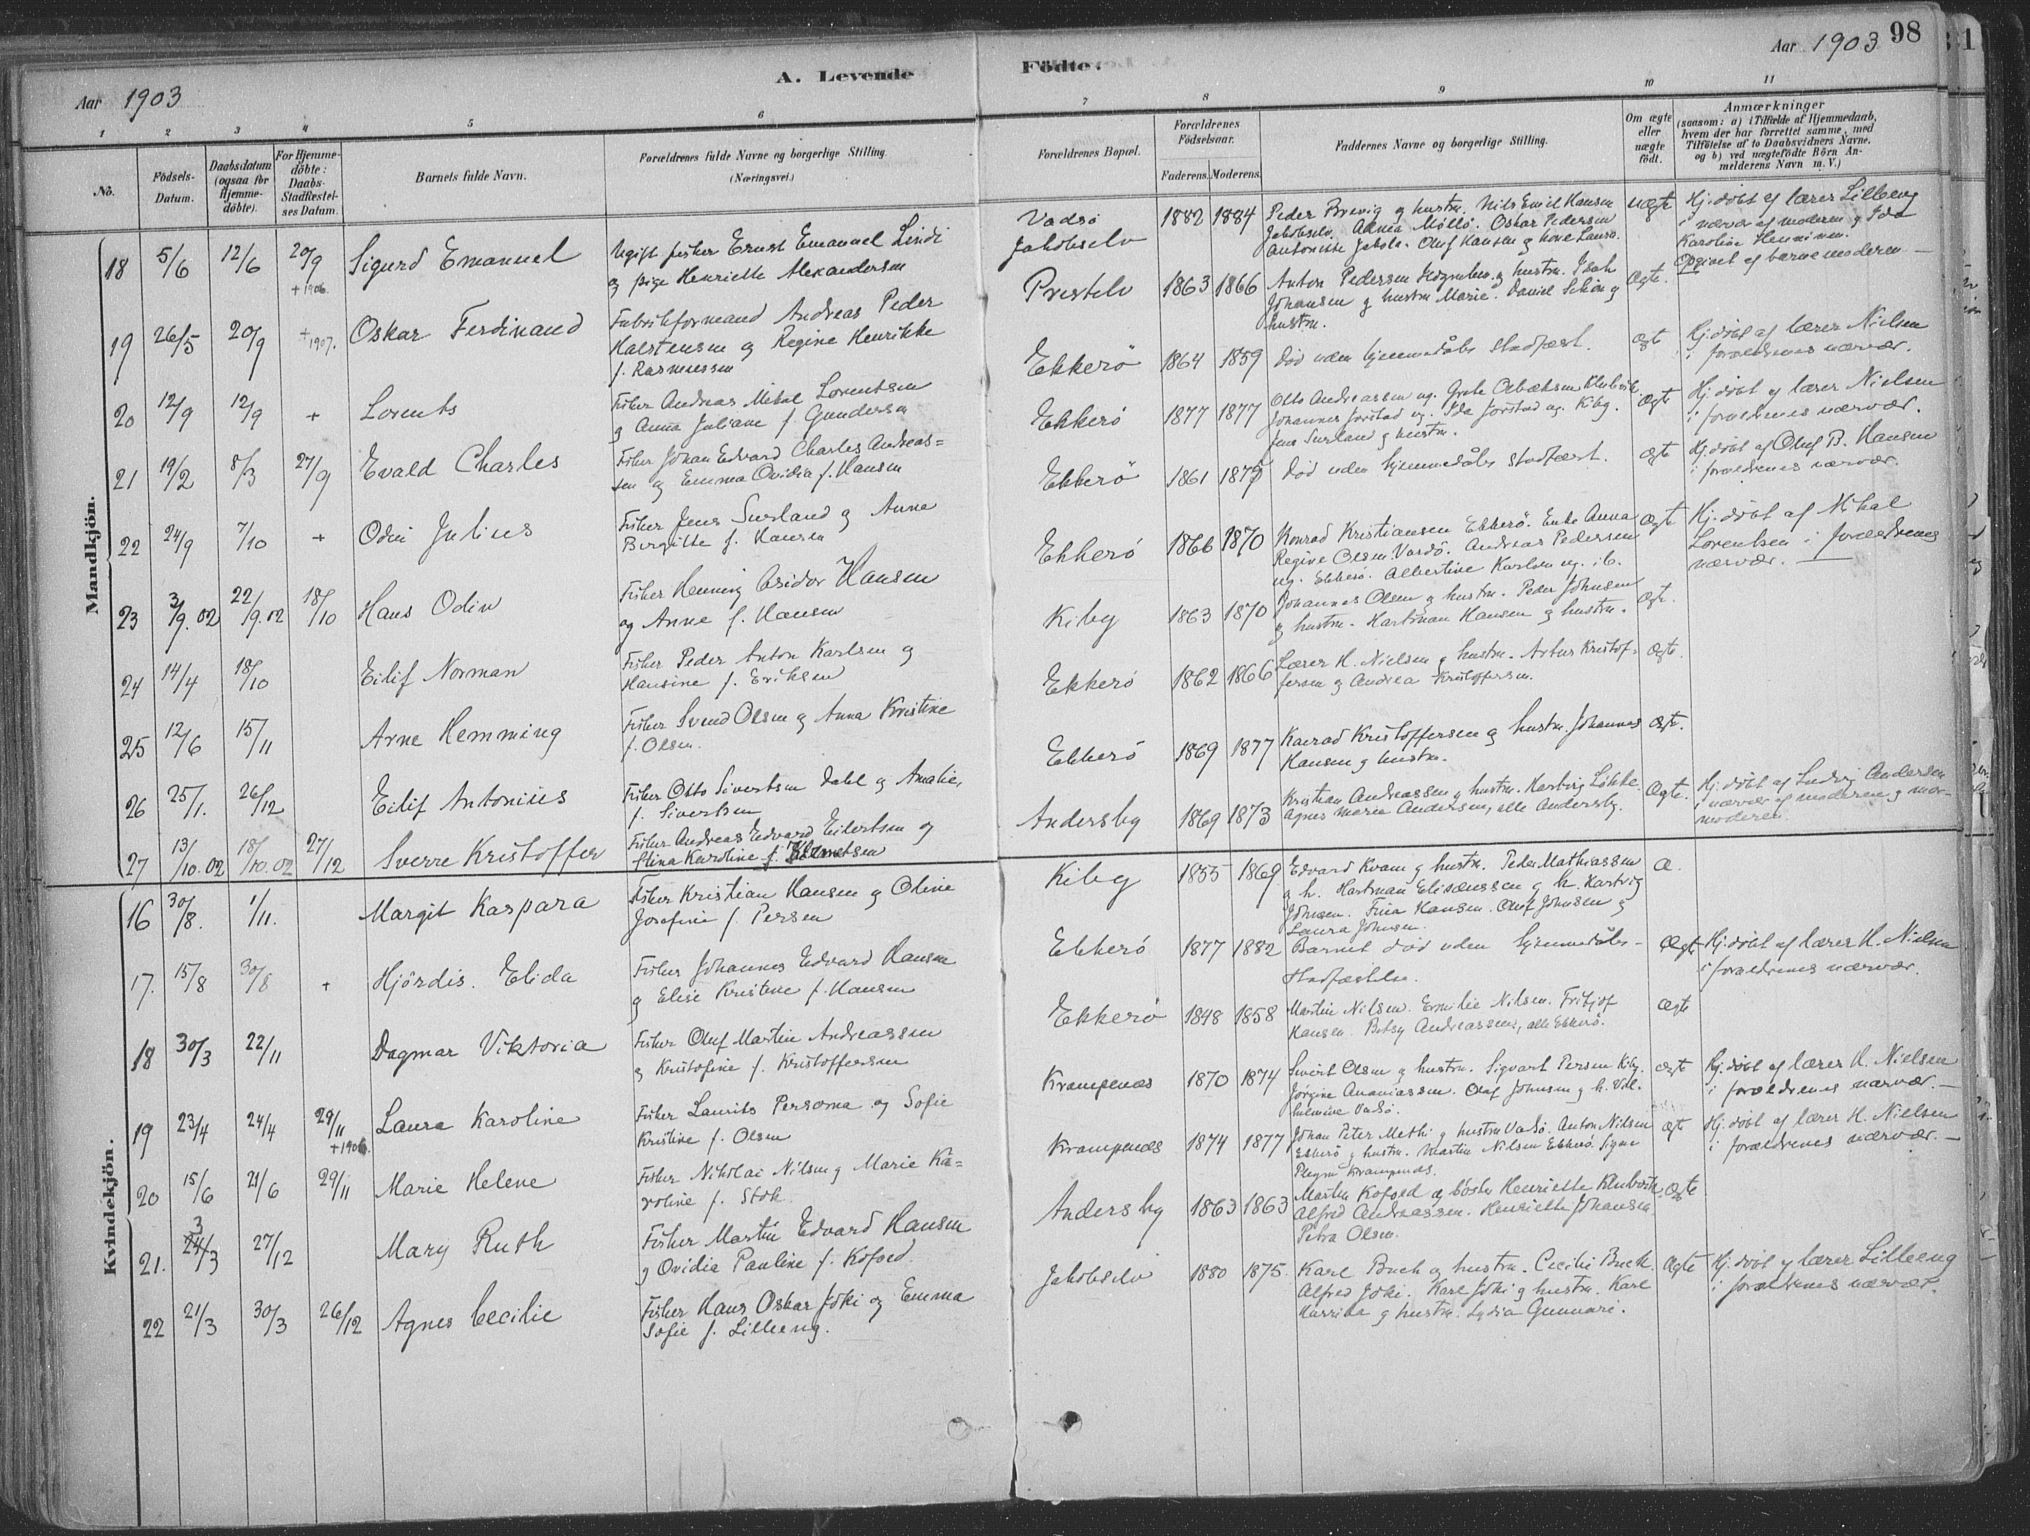 Aar 1903
A. Levende
Födte.
Aar 1903 98
1 2 3 4 5 6
7 8 9 10 11
No.
Födsels-
Datum.
Daabsdatum
(ogsaa for
Hjemme-
döbte).
For Hjemme-
döbte:
Daabs-
Stadfæstel-
ses Datum.
Barnets fulde Navn.
Forældrenes fulde Navne og borgerlige Stilling.
(Næringsvei.)
Forældrenes Bopæl.
Forældrenes
Födselsaar.
Faderens. Moderens.
Faddernes Navne og borgerlige Stilling.
Om ægte
eller
uægte
födt.
Anmærkninger
(saasom: a) i Tilfælde af Hjemmedaab,
hvem der har forrettet samme, med
Tilföielse af to Daabsvidners Navne,
og b) ved uægtefödte Börn An-
melderens Navn m. V.)
Mandkjön.
18 5/6 12/6 20/9 +1906. Sigurd Emanuel
Ugift fisker Ernst Emanuel Lindi
og pige Henriette Alexandersen
Vadsø
Jakobselv
1882 1884
Peder Brevig og hustru. Nils Emil Hansen
Jakobselv. Oskar Pedersen
Oluf Hansen og
uægte
Hj. døbt af lærer Lilleeng
i nærvær af moderen og Ida
Karoline Henninen.
Opgivet af barnemoderen —
19 26/5 20/9 +1907. Oskar Ferdinand
Fabrikformand Andreas Peder
Halstensen og Regine Henrikke
f. Rasmussen
Prestelv
1863 1866
Anton Pedersen og hustru. Isak
Johansen og hustru Marie. Daniel Schön og
hustru.
Ægte.
20 12/9 12/9 + Lorents
Fisker Andreas Mikal Lorentsen
og Anna Juliane f. Gundersen
Ekkerö
1864 1859
Død uden hjemmedåbs stadfæst.
ægte
Hj. døbt af lærer Nielsen
i forældrenes nærvær.
21 19/2 8/3 27/9 Evald Charles
Fisker Johan Edvard Charles Andreas=
sen og Emma Ovidia f. Hansen
Ekkerö
1877 1877
Otto Andreassen ug. Grete Klubvik
Johannes Jorstad ug. Ida Jorstad ug. Kibg.
Jens Surland og hustru.
ægte
Hj. døbt af lærer Nielsen
i forældrenes nærvær.
22 24/9 7/10 + Odin Julius
Fisker Jens Surland og Anne
Birgitte f. Hansen
Ekkerö
1861 1875
Død uden hjemmedåbs stadfæst.
ægte
Hj. døbt af Oluf B. Hansen
i forældrenes nærvær.
23 3/9.02 22/9.02 18/10 Hans Odin
Fisker Henning Asidor Hansen
og Anne f. Hansen
Ekkerö
1866 1870
Konrad Kristiansen Ekkerö. Enke Anna
Regine Olsen Vardö. Andreas Pedersen
ug. Ekkerö. Albertine Karlsen ug. ib.
ægte
Hj. døbt af Mikal
Lorentsen i forældrenes
nærvær. —
24 14/4 18/10 Eilif Norman
Fisker Peder Anton Karlsen og
Hansine f. Eriksen
Kiby
1863 1870
Johannes Olsen og hustru. Peder Johnsen
og hustru. Hartman Hansen og hustru.
Ægte.
25 12/6 15/11 Arne Hemming
Fisker Svend Olsen og Anna Kristine
f. Olsen.
Ekkerö
1862 1866
Lærer H. Nielsen og hustru. Artur Kristof-
fersen og Andrea Kristoffersen.
Ægte.
26 25/1. 26/12 Eilif Antonius
Fisker Otto Sivertsen Dahl og Amalie,
f. Sivertsen
Ekkerö
1869 1877
Konrad Kristoffersen og hustru. Johannes
Hansen og hustru.
Ægte.
27 13/10.02 18/10.02 27/12 Sverre Kristoffer
Fisker Andreas Edvard Eilertsen og
Stina Karoline f. Klemetsen
Andersby
1869 1873
Kristian Andreassen og hustru. Hartvig Løkke.
Agnes Marie Andersen, alle Andersby.
Ægte.
Hj. døbt af Ludvig Andersen
i nærvær af moderen og mor-
moderen.
Kvindekjön.
16 30/8. 1/11. Margit Kaspara
Fisker Kristian Hansen og Oline
Josefine f. Persen
Kiby
1855 1869
Edvard Kvam og hustru. Peder Mathiassen
og h. Hartman Elisæussen og h. Hartvig
Johnsen. Trina Hansen. Oluf Johnsen og
Laura Johnsen.
Æ.
17. 15/8 30/8 + Hjördis. Elida
Fisker Johannes Edvard Hansen
og Elise Kristine f. Hansen
Ekkerö
1877 1882
Barnet død uden hjemmedåbs-
stadfæstelse.
Ægte
Hj. døbt af lærer H. Nielsen
i forældrenes nærvær.
18 30/3 22/11 Dagmar Viktoria
Fisker Oluf Martin Andreassen
og Kristofine f. Kristoffersen
Ekkerö
1848 1858
Martin Nilsen. Emilie Nilsen. Fritjof
Hansen. Betsy Andreassen, alle Ekkerö.
Ægte
19 23/4 24/4 29/11 +1906. Laura Karoline
Fisker Laurits Persona og Sofie
Kristine f. Olsen
Krampenæs
1870 1874
Sivert Olsen og hustru. Sigvart Persen Kiby.
Jørgine Ananiassen. Oluf Johnsen og h. Vil-
helmine Vadsö.
ægte
Hj. døbt af lærer H. Nielsen
i forældrenes nærvær. —
20 15/6 21/6 29/11 Marie Helene
Fisker Nikolai Nilsen og Marie Ka=
roline f. Stok.
Krampenæs
1874 1877
Johan Peter Methi og hustru Vadsö. Anton Nilsen
Ekkerö og hustru. Martin Nilsen Ekkerö. Signe
Krampenæs.
ægte
Hj. døbt af lærer H. Nielsen
i forældrenes nærvær. —
21. 3 24/3 27/12 Mary Ruth
Fisker Martin Edvard Hansen
og Ovidia Pauline f. Kofoed.
Andersby
1863 1863
Martin Kofoed og søster Henriette Klubvik.
Alfred Andreassen. Henriette Johansen
Petra Olsen.
Ægte
22 21/3 30/3 26/12 Agnes Cecilie
Fisker Hans Oskar Joki og Emma
Sofie f. Lilleeng.
Jakobselv
1880 1875.
Karl Buck og hustru. Cecilie Buck.
Alfred Joki. Karl Joki og hustru. Karl
Harrika og hustru. Lydia Gunnari.
Ægte
Hj. døbt af lærer Lilleeng
i forældrenes nærvær.